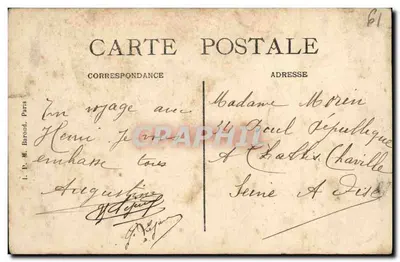 61
CARTE POSTALE
CORRESPONDANCE
ADRESSE
En voyage avec
Henri je vous
embrasse tous
Augustine
Madame Morin
14 Boul République
A Chaville
Seine A Oise
GRAPHIL
Paris